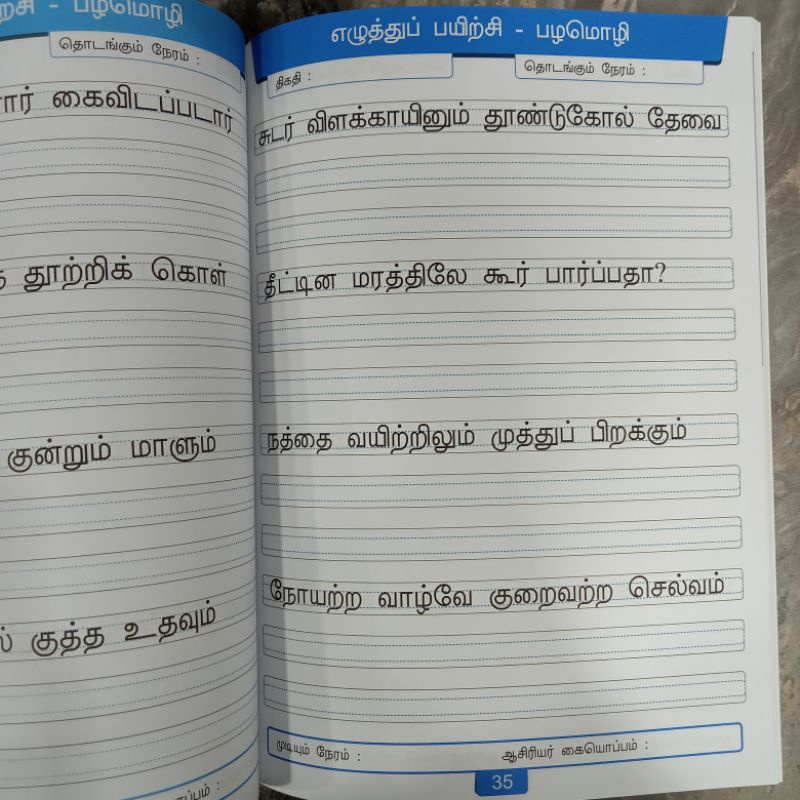 பழமொழி
தொடங்கும் நேரம் :
கைவிடப்படார்
தூற்றிக் கொள்
குன்றும் மாளும்
குத்த உதவும்
எழுத்துப் பயிற்சி - பழமொழி
திகதி :
தொடங்கும் நேரம் :
சுடர் விளக்காயினும் தூண்டுகோல் தேவை
தீட்டின மரத்திலே கூர் பார்ப்பதா?
நத்தை வயிற்றிலும் முத்துப் பிறக்கும்
நோயற்ற வாழ்வே குறைவற்ற செல்வம்
முடியும் நேரம் :
ஆசிரியர் கையொப்பம் :
35